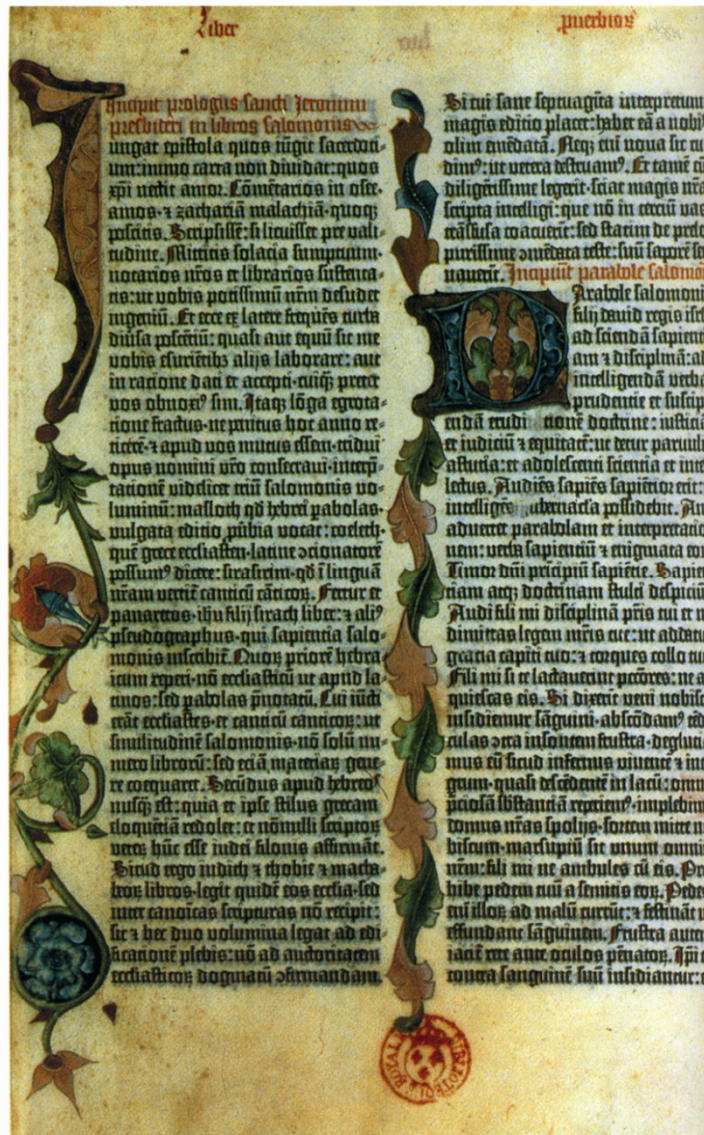 Liber
puerbioꝝ
Incipit prologus sancti Jeronimi
presbiteri in libros salomonis
Iungat epistola quos iūgit sacerdoti-
um: immo carta non diuidat: quos
xp̄i nectit amor. Cōmētarios in osee.
amos. ⁊ zachariā malachiā. quoqꝫ
poscitis. Scripsissē: si licuisset pre vali-
tudine. Mittitis solacia sumptuum.
notarios nr̄os et librarios sustenta-
tis: ut vobis potissimū nr̄m desudet
ingeniū. Et ecce ex latere frequēs turba
diūsa poscētiū: quasi aut equū sit me
vobis esuriētibꝫ alijs laborare: aut
in ratione dati et accepti. cuiqꝫ preter
vos obnoxiꝰ sim. Itaqꝫ lōga egrota-
tione fractus. ne penitus hoc anno re-
ticerē. ⁊ apud vos mutus essem. tridui
opus nomini vr̄o consecraui. interp̄-
tationē videlicet triū salomonis vo-
luminū: masloth qd̄ hebrei pabolas.
vulgata editio pūbia vocat: coeleth.
quē grece ecclesiasten. latine ↄcionatorē
possumꝰ dicere: sirasirim. qd̄ ī linguā
nr̄am vertit̄ canticū cāticoꝝ. Fertur et
panaretos. ihū filij sirach liber: ⁊ aliꝰ
pseudographus. qui sapientia salo-
monis inscribit̄. Quoꝝ priorē hebra-
icum reperi. nō ecclesiasticū ut apud la-
tinos: sed pabolas p̄notatū. Cui iūcti
erāt ecclesiastes. et canticū canticoꝝ: ut
similitudinē salomonis. nō solū nu-
mero librorū: sed etiā materiaꝝ gene-
re coequaret. Secūdus apud hebreos
nusqꝫ est: quia et ipse stilus grecam
eloquētiā redolet: et nōnulli scriptoꝝ
veteꝝ hūc esse iudei filonis affirmāt.
Sicud ergo iudith ⁊ thobie ⁊ macha-
beoꝝ libros. legit quidē eos ecclesia. sed
inter canoicas scripturas nō recipit:
sic ⁊ hec duo volumina legat ad edi-
ficationē plebis: nō ad auctoritatem
ecclesiasticoꝝ dogmatū ↄfirmandam.
Si cui sane septuagīta interpretum
magis editio placet: habet eā a nobis
olim emēdatā. Neqꝫ enī noua sic cu-
dimꝰ: ut vetera destruamꝰ. Et tamē cū
diligētissime legerit. sciat magis nr̄a
scripta intelligi: que nō in terciū vas
trāsfusa coacuerit: sed statim de prelo
purissime ↄmēdata teste: suū saporē s
uauerit. Incipiūt parabole salomonis
Parabole salomonis
filij dauid regis isrl̄
ad sciendā sapienti
am ⁊ disciplinā: ad
intelligendā verba
prudentie et suscip
endā eruditionē doctrine: iusticiā
et iudiciū ⁊ equitatē: ut detur paruulis
astutia: et adolescenti scientia et intel
lectus. Audiēs sapiēs sapiētior erit:
intelligēs gubernacla possidebit. An
aduertet parabolam et interpretatio
nem: verba sapientiū ⁊ enigmata eoꝝ
Timor dn̄i pricipiū sapiētie. Sapien
tiam atqꝫ doctrinam stulti despiciūt
Audi fili mi disciplinā pr̄is tui et ne
dimittas legem mr̄is tue: ut addatur
gracia capiti tuo: ⁊ torques collo tuo
Fili mi si te lactauerint pctōres: ne a
quiescas eis. Si dixerit veni nobiscū
insidiemur sāguini. abscōdamꝰ tēdi
culas ↄtra insontem frustra. deglutia
mus eū sicud infernus viuentē ⁊ inte
grum. quasi descēdentē in lacū: omnē
p̄ciosā sb̄stantiā reperiemꝰ. implebimꝰ
domus nr̄as spolijs. sortem mitte no
biscum. marsupiū sit unum omniū
nr̄m: fili mi ne ambules cū eis. Pro
hibe pedem tuū a semitis eoꝝ. Pedes
enī illoꝝ ad malū currūt: ⁊ festināt ut
effundant sāguinem. Frustra autem
iacit̄ rete ante oculos pēnatoꝝ. Ipi q
contra sanguinē suū insidiantur: et